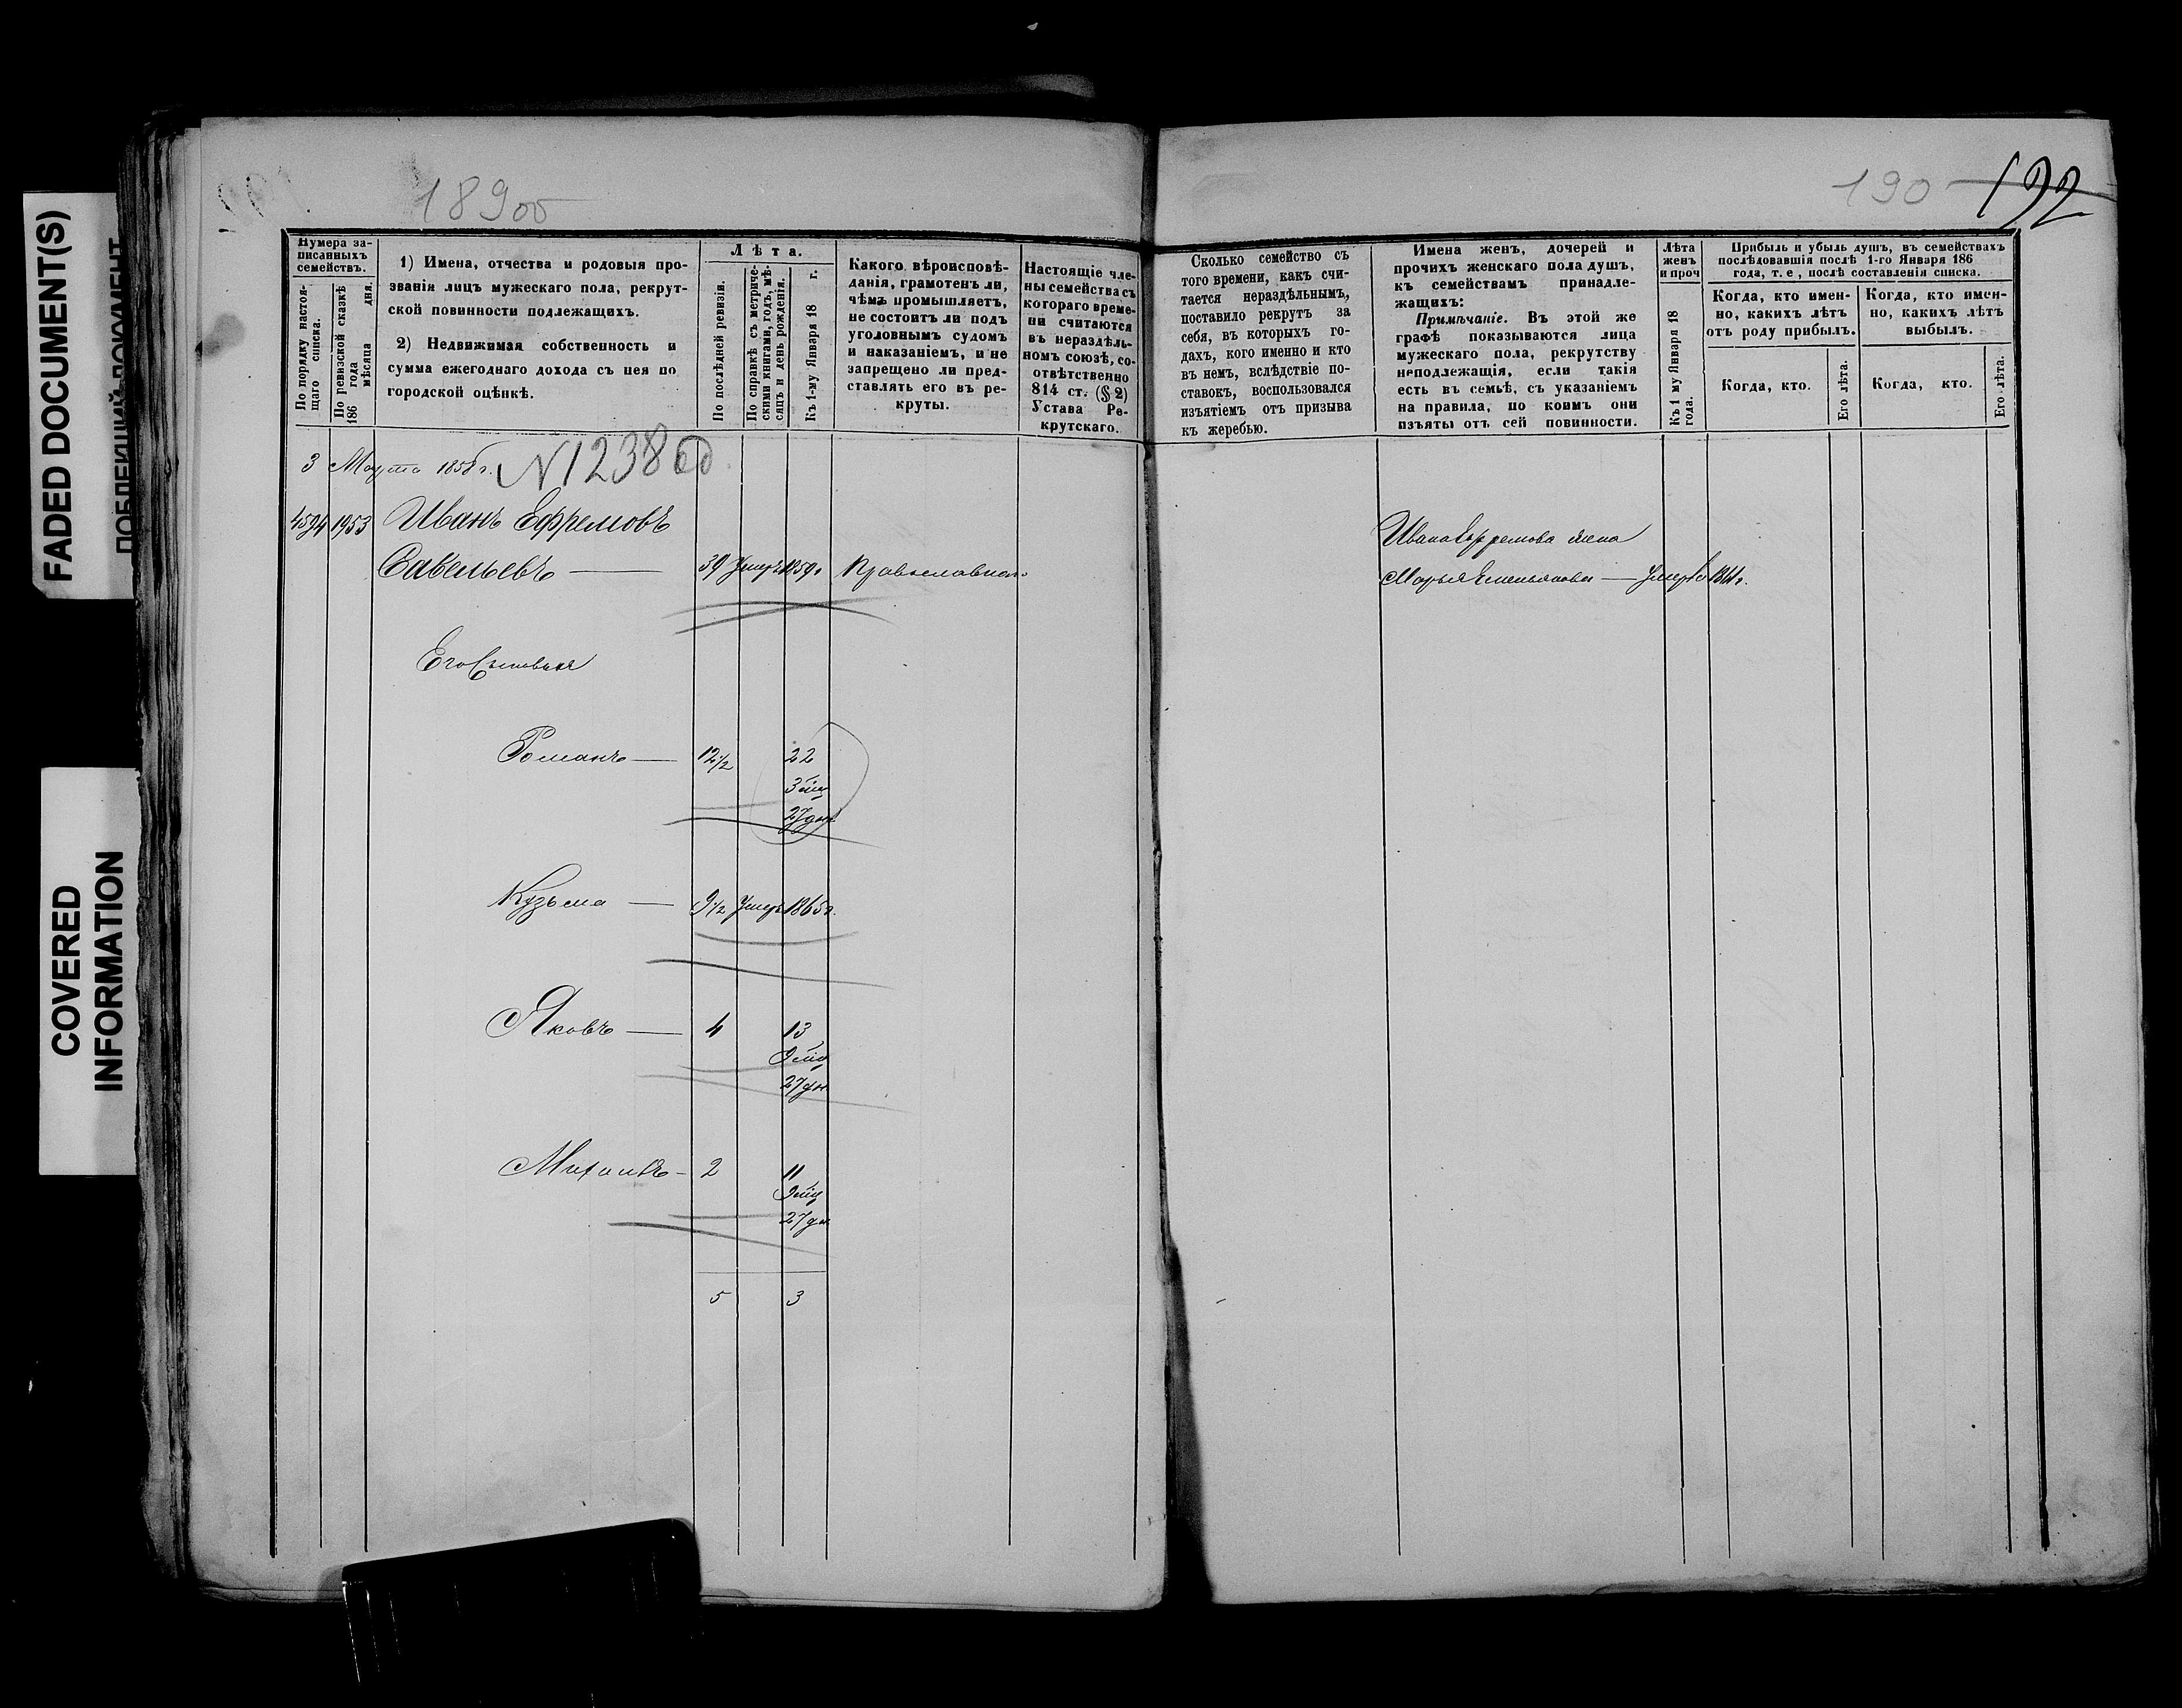 FADED DOCUMENT(S)
COVERED
INFORMATION
189об
190 192
Нумера за-
писанныхъ
семействъ.
По порядку настоя-
щаго списка.
По ревизской сказкѣ
186 года мѣсяца дня.
1) Имена, отчества и родовыя про-
званія лицъ мужескаго пола, рекрут-
ской повинности подлежащихъ.
2) Недвижимая собственность и
сумма ежегоднаго дохода съ нея по
городской оцѣнкѣ.
Лѣта.
По послѣдней ревизіи.
По справкѣ съ метриче-
скими книгами, годъ, мѣ-
сяцъ и день рожденія.
Къ 1-му Января 18 г.
Какого вѣроисповѣ-
данія, грамотенъ ли,
чѣмъ промышляетъ,
не состоитъ ли подъ
уголовнымъ судомъ
и наказаніемъ, и не
запрещено ли пред-
ставлять его въ ре-
круты.
Настоящіе чле-
ны семейства съ
котораго време-
ни считаются
въ нераздѣль-
номъ союзѣ, со-
отвѣтственно
814 ст. (§ 2)
Устава Ре-
крутскаго.
Сколько семейство съ
того времени, какъ счи-
тается нераздѣльнымъ,
поставило рекрутъ за
себя, въ которыхъ го-
дахъ, кого именно и кто
въ немъ, вслѣдствіе по-
ставокъ, воспользовался
изъятіемъ отъ призыва
къ жеребью.
Имена женъ, дочерей и
прочихъ женскаго пола душъ,
къ семействамъ принадле-
жащихъ:
Примѣчаніе. Въ этой же
графѣ показываются лица
мужескаго пола, рекрутству
неподлежащія, если такія
есть въ семьѣ, съ указаніемъ
на правила, по коимъ они
изъяты отъ сей повинности.
Лѣта
женъ
и проч
Къ 1 му Января 18
года.
Прибыль и убыль душъ, въ семействахъ
послѣдовавшія послѣ 1-го Января 186
года, т. е, послѣ составленія списка.
Когда, кто имен-
но, какихъ лѣтъ
отъ роду прибылъ.
Когда, кто имен-
но, какихъ лѣтъ
выбылъ.
Когда, кто.
Его лѣта.
Когда, кто.
Его лѣта.
3 Марта 1858 г. N 1238
4594 1953 Иванъ Ефремовъ
Савельевъ — 39 Умеръ 1859г Православнаго
Ивана Ефремова жена
Марья Емельянова — Умерла 1861 г.
Его Сыновья
Романъ — 12½ 22
3 мц
27 дн
Кузьма — 9½ Умеръ 1865г.
Яковъ — 4 13
9 мц
27 дн
Михаилъ - 2 11
9 мц
27 дн
5 3